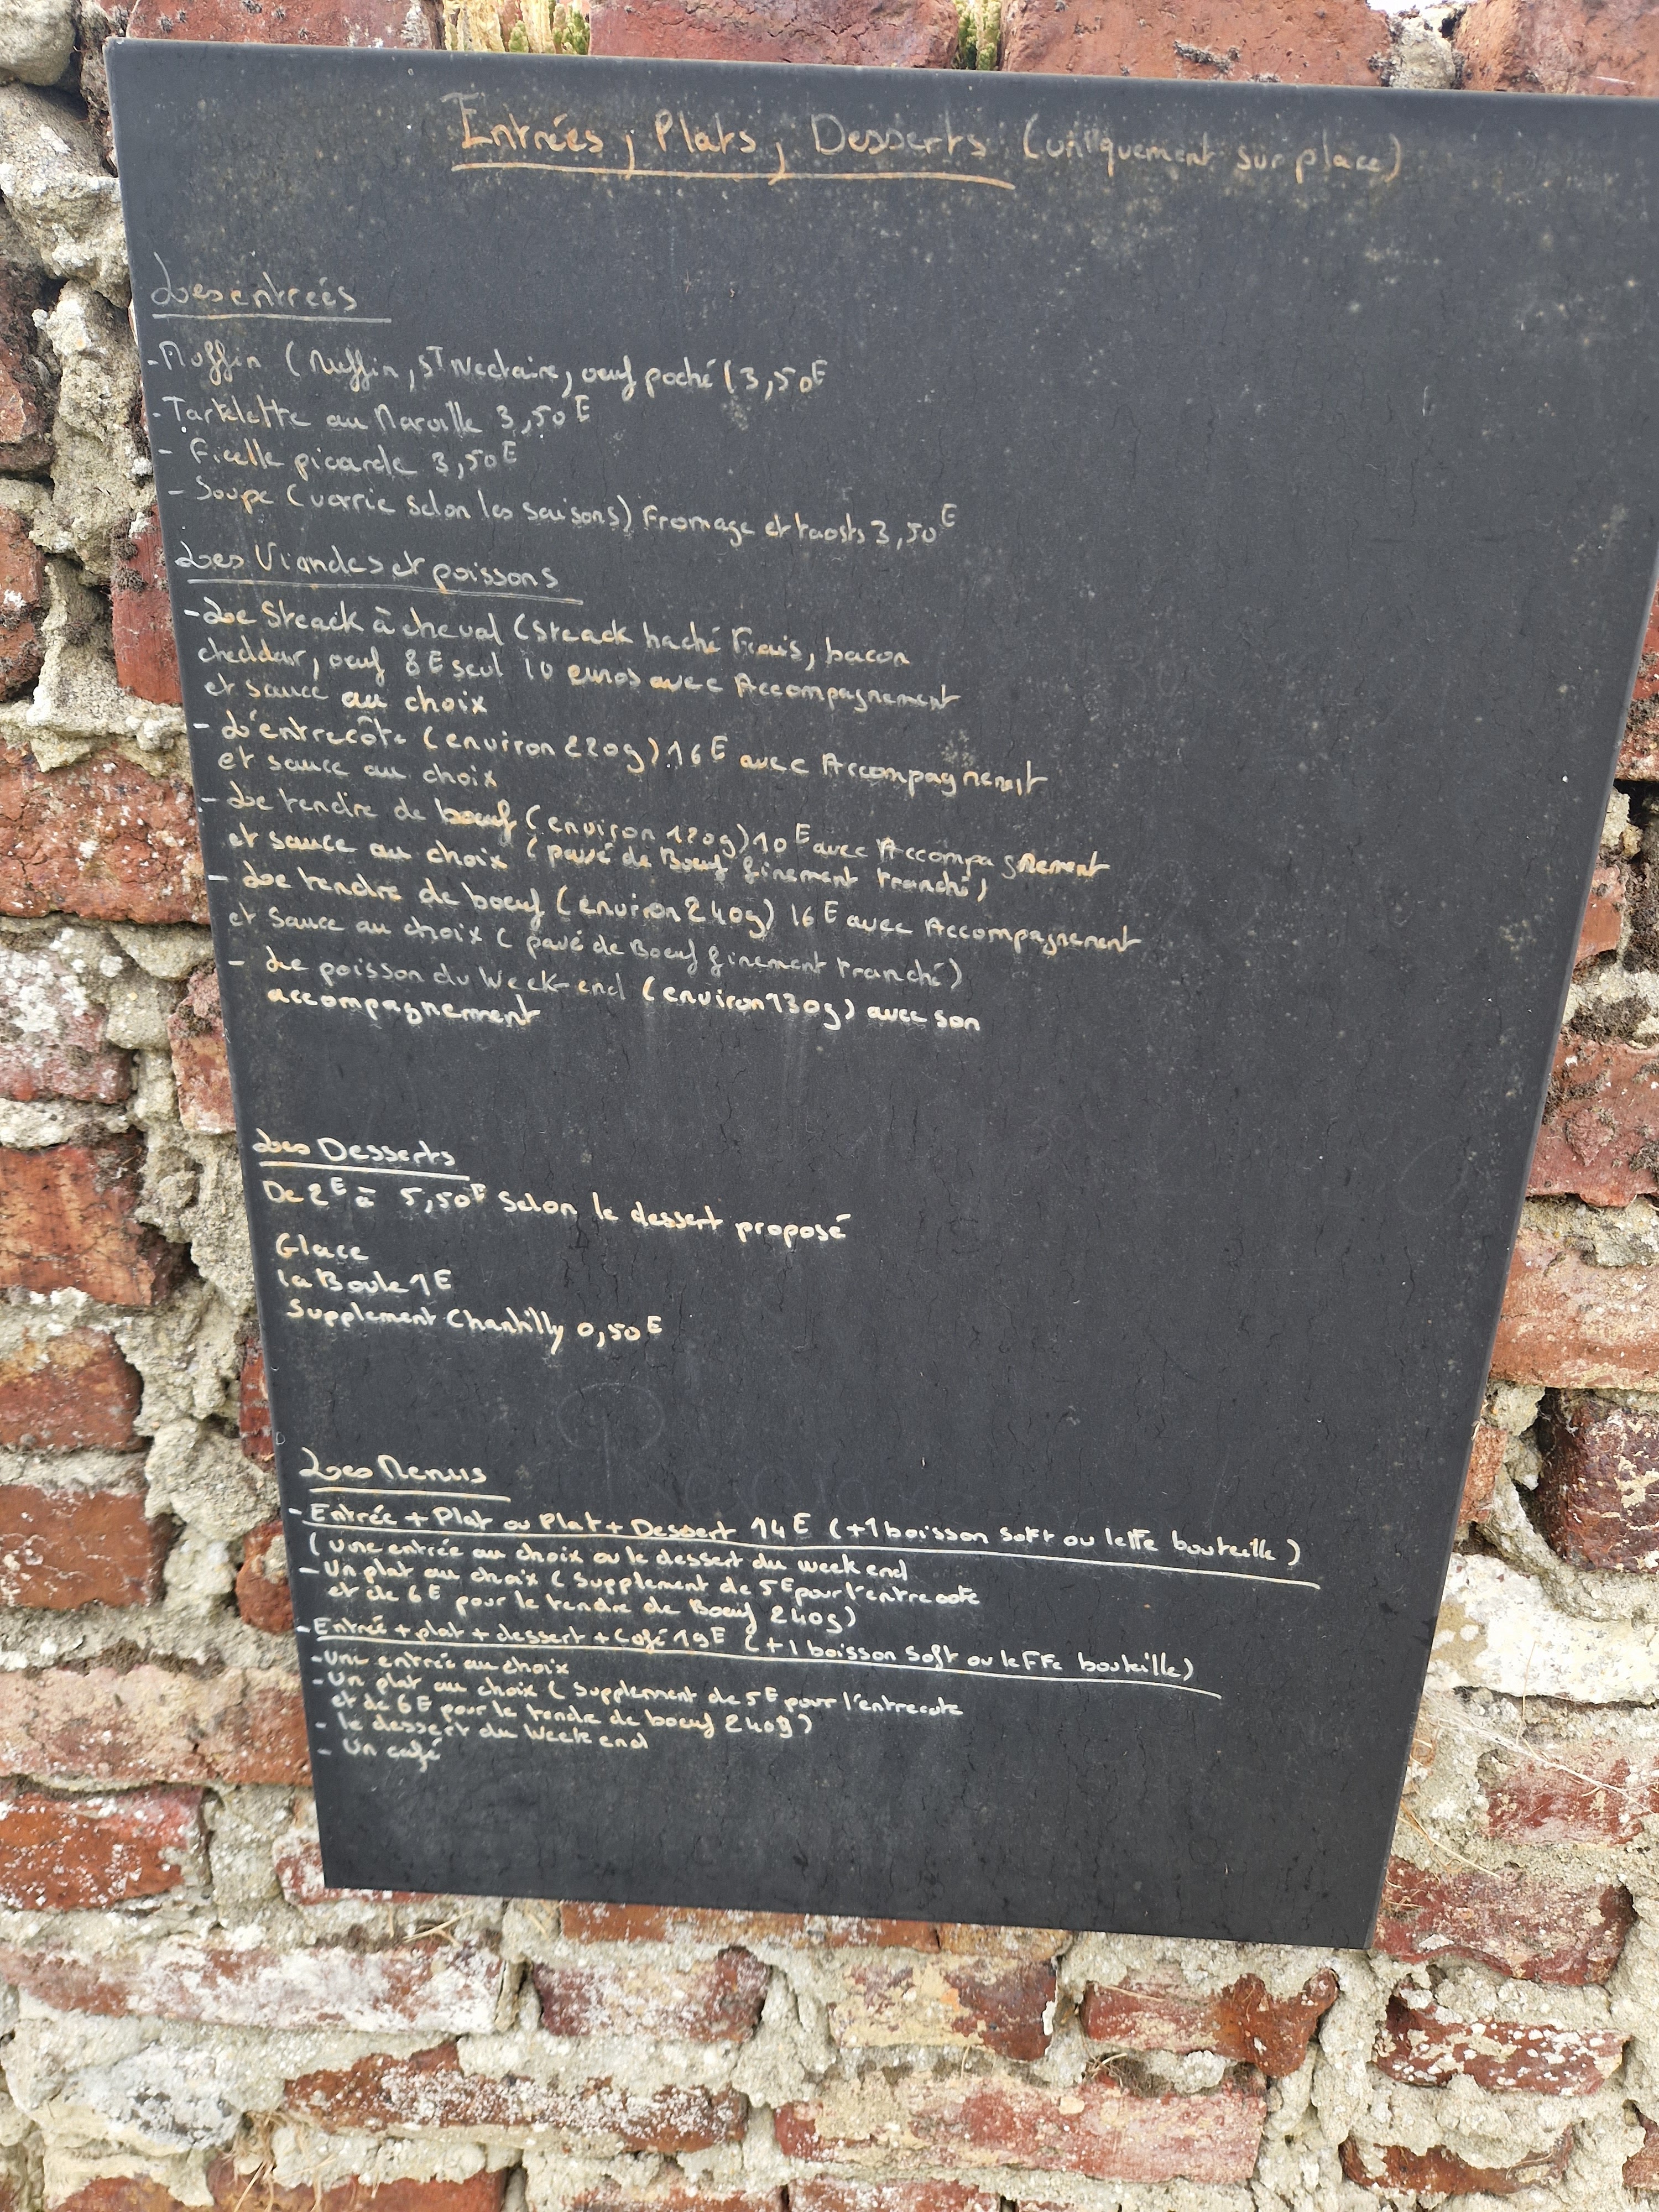 Entrées, Plats, Desserts (uniquement sur place)
Les entrées
- Moffin (Muffin, St Nectaire, oeuf poché (3,50E
- Tartelette au Maroille 3,50E
- Ficelle picarde 3,50E
- Soupe (varrie selon les saisons) Fromage et toasts 3,50E
Les Viandes et poissons
- Le Steack à cheval (Steack haché Frais, bacon
cheddar, oeuf 8E seul 10 euros avec Accompagnement
et sauce au choix
- L'entrecôte (environ 220g) 16E avec Accompagnement
et sauce au choix
- Le tendre de boeuf (environ 120g) 10E avec Accompagnement
et sauce au choix (pavé de Boeuf finement tranché)
- Le tendre de boeuf (environ 240g) 16E avec Accompagnement
et sauce au choix (pavé de Boeuf finement tranché)
- Le poisson du Week-end (environ 130g) avec son
accompagnement
Les Desserts
De 2E à 5,50E Selon le dessert proposé
Glace
la Boule 1E
Supplement Chantilly 0,50E
Les Menus
- Entrée + Plat ou Plat + Dessert 14E (+1 boisson soft ou leffe bouteille)
(une entrée au choix ou le dessert du week end
- Un plat au choix (Supplement de 5E pour l'entrecote
et de 6E pour le tendre de Boeuf 240g)
- Entrée + plat + dessert + Café 19E (+1 boisson soft ou leffe bouteille)
- Une entrée au choix
- Un plat au choix (Supplement de 5E pour l'entrecote
et de 6E pour le tendre de boeuf 240g)
- le dessert du Week end
- Un café